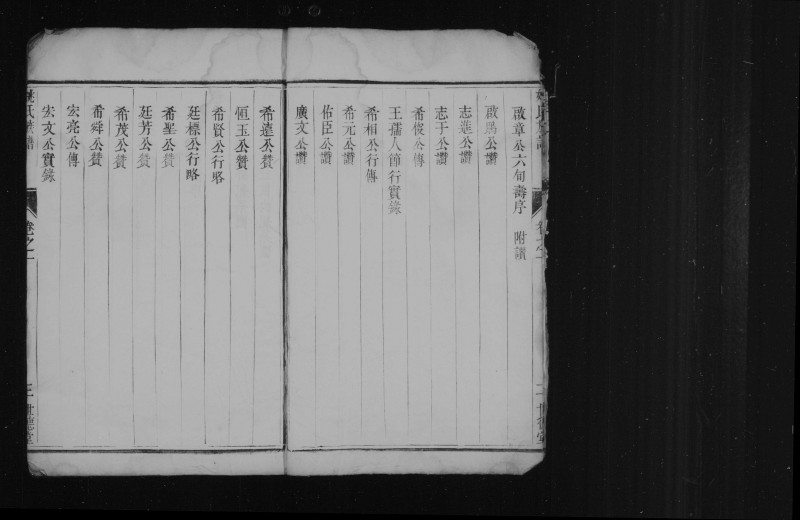 啟章公六旬壽序 附讚
啟爲公讚
志進公讚
志于公讚
希俊公傳
王孺人節行實錄
希相公行傳
希元公讚
佑臣公讚
廣文公讚
希進公贊
恒玉公贊
希賢公行略
廷標公行略
希聖公贊
廷芳公贊
希茂公贊
希舜公贊
宏亮公傳
宏文公實錄
氏族譜
卷之一
三
世德堂